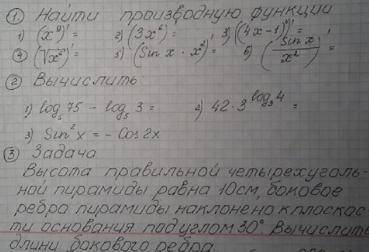 ① Найти производную функции
1) (x⁴)' = 2) (3x²)' = 3) ((4x-1)²)' =
④ (√x²)' = 5) (Sin x · x²)' = 6) (Sin x / x²)' =
② Вычислить
1) log₅ 75 - log₅ 3 = 2) 42 · 3^(log₃ 4) =
3) Sin² x = - Cos 2x
③ Задача
Высота правильной четырехуголь-
ной пирамиды равна 10см, боковое
ребра пирамиды наклонено к плоскос-
ти основания под углом 30°. Вычислить
длину бокового ребра.